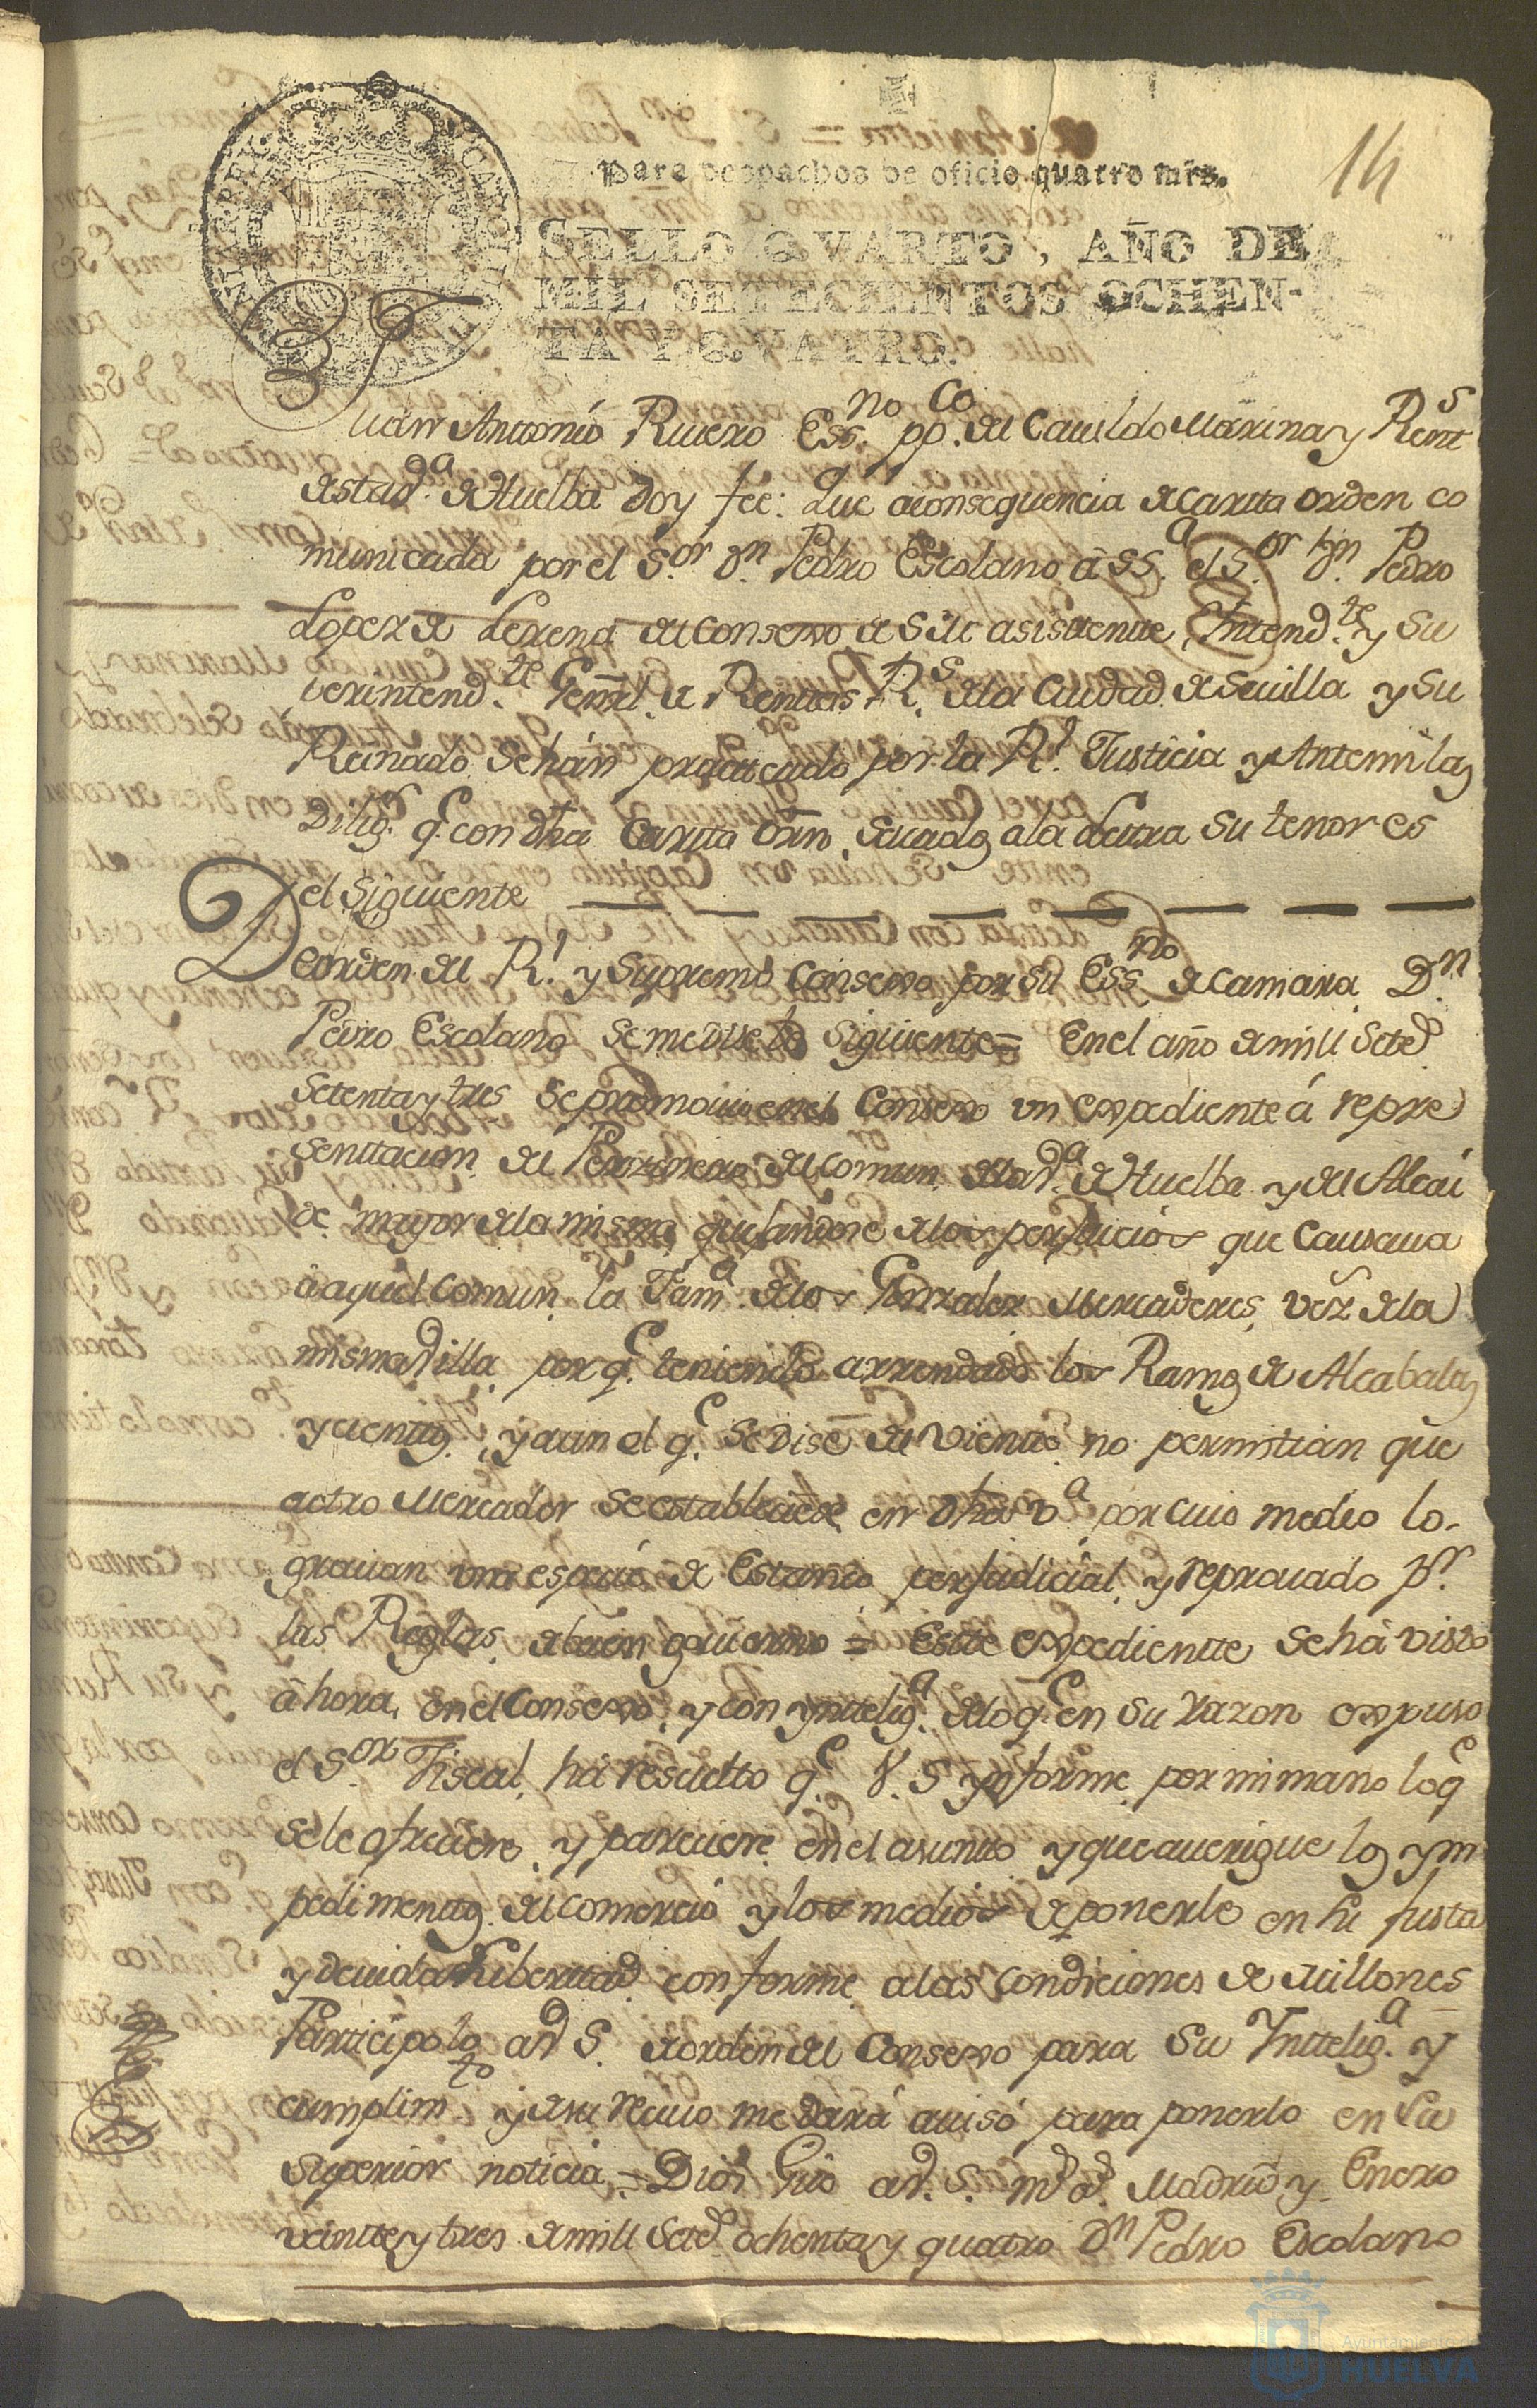 14
Para despachos de oficio quatro mrs.
SELLO QVARTO, AÑO DE
MIL SETECIENTOS OCHEN-
TA Y QVATRO.
Juan Antonio Rivero Essno. ppco. del Cavildo Marina y Rents
de esta va. de Huelba doy fee: Que a consequencia de carta orden co
municada por el Sor. Dn. Pedro Escolano á SSa. el Sor. Dn. Pedro
Lopez de Lerena del Consexo de S.M. asistente, Intendte. y Su
perintendte. Genrl. de Rentas Rs. de la Ciudad de Sevilla y su
Reinado se hán practicado por la Rl. Justicia y Antemi las
Dilixs. qe. con dha Carta Orn. sacadas a la letra su tenor es
el siguiente
De orden del Rl. y Supremo Consexo por su Essno. de Camara Dn.
Pedro Escolano se me dise lo siguiente = En el año de mill seted
setenta y tres se promovio en el Consexo un expediente á repre
sentacion del Personero del comun de la Va. de Huelba y del Alcai
de mayor de la misma quejandose de los perjuicios que causava
á aquel comun la Fama. de los Gonzalez Mercaderes, vez. de la
misma Villa por qe. teniendo arrendado los Ramos de Alcabalas
y cientos, y aun el qe. se dise del viento no permitian que
a otro Mercador se estableciese en dha va. por cuio medio lo-
gravan una especie de Estanco perjudicial, y reprovado pr.
las Reglas de buen govierno = Este expediente se há visto
áhora en el Consexo, y con yntteliga. de lo qe. en su razon expuso
el Sor. Fiscal, há resuelto qe. V.S ynforme por mi mano lo qe
se le ofreciere y pareciere en el asunto y que averigue los ym
pedimentos del comercio y los medios de ponerle en su justa
y devida libertad conforme a las condiciones de Millones
Participolo a V S. de orden del Consexo para su Ynteliga. y
cumplimto y de su recivo me dará avisó para ponerlo en la
superior noticia = Dios Gue a V. S. ms as. Madrid y Enero
veinte y tres de mill seted ochenta y quatro Dn Pedro Escolano
Ayuntamiento
HUELVA